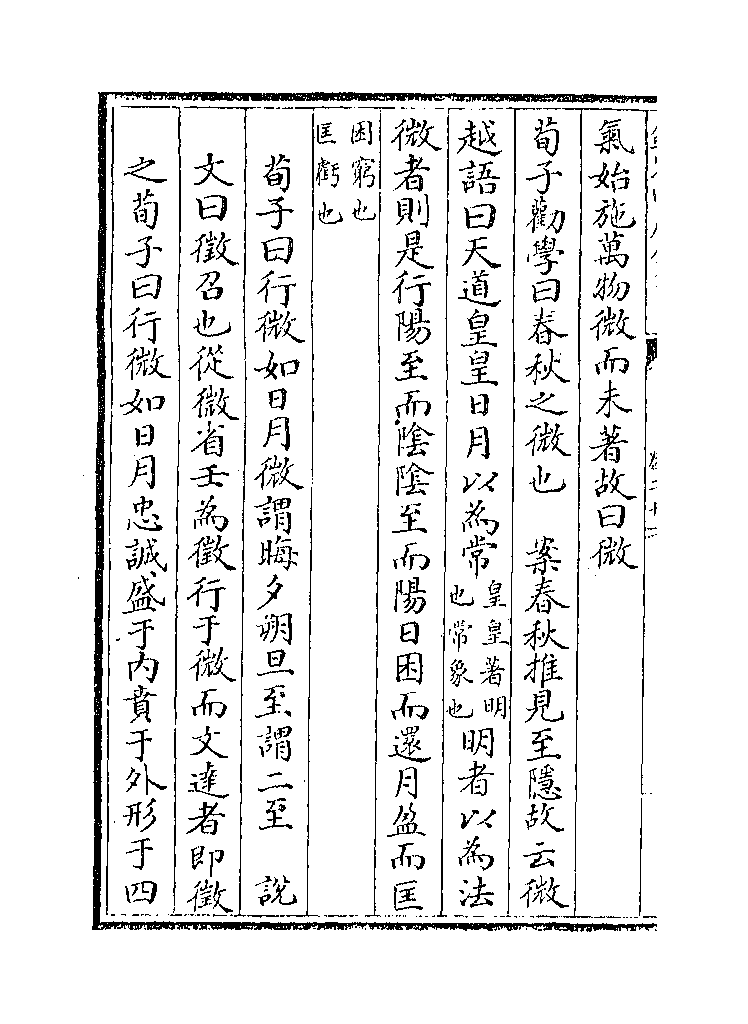 氣始施萬物微而未著故曰微
荀子勸學曰春秋之微也　案春秋推見至隱故云微
越語曰天道皇皇日月以為常皇皇著明也常象也明者以為法
微者則是行陽至而陰陰至而陽日困而還月盈而匡
困窮也匡虧也
荀子曰行微如日月微謂晦夕朔旦至謂二至　說
文曰徵召也從微省壬為徵行于微而文達者即徵
之荀子曰行微如日月忠誠盛于內賁于外形于四